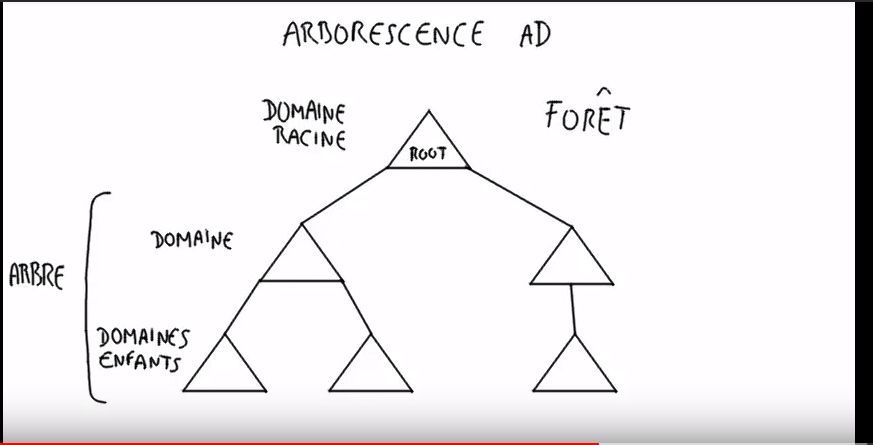 ARBORESCENCE AD
DOMAINE
RACINE
FORÊT
ROOT
DOMAINE
ARBRE
DOMAINES
ENFANTS